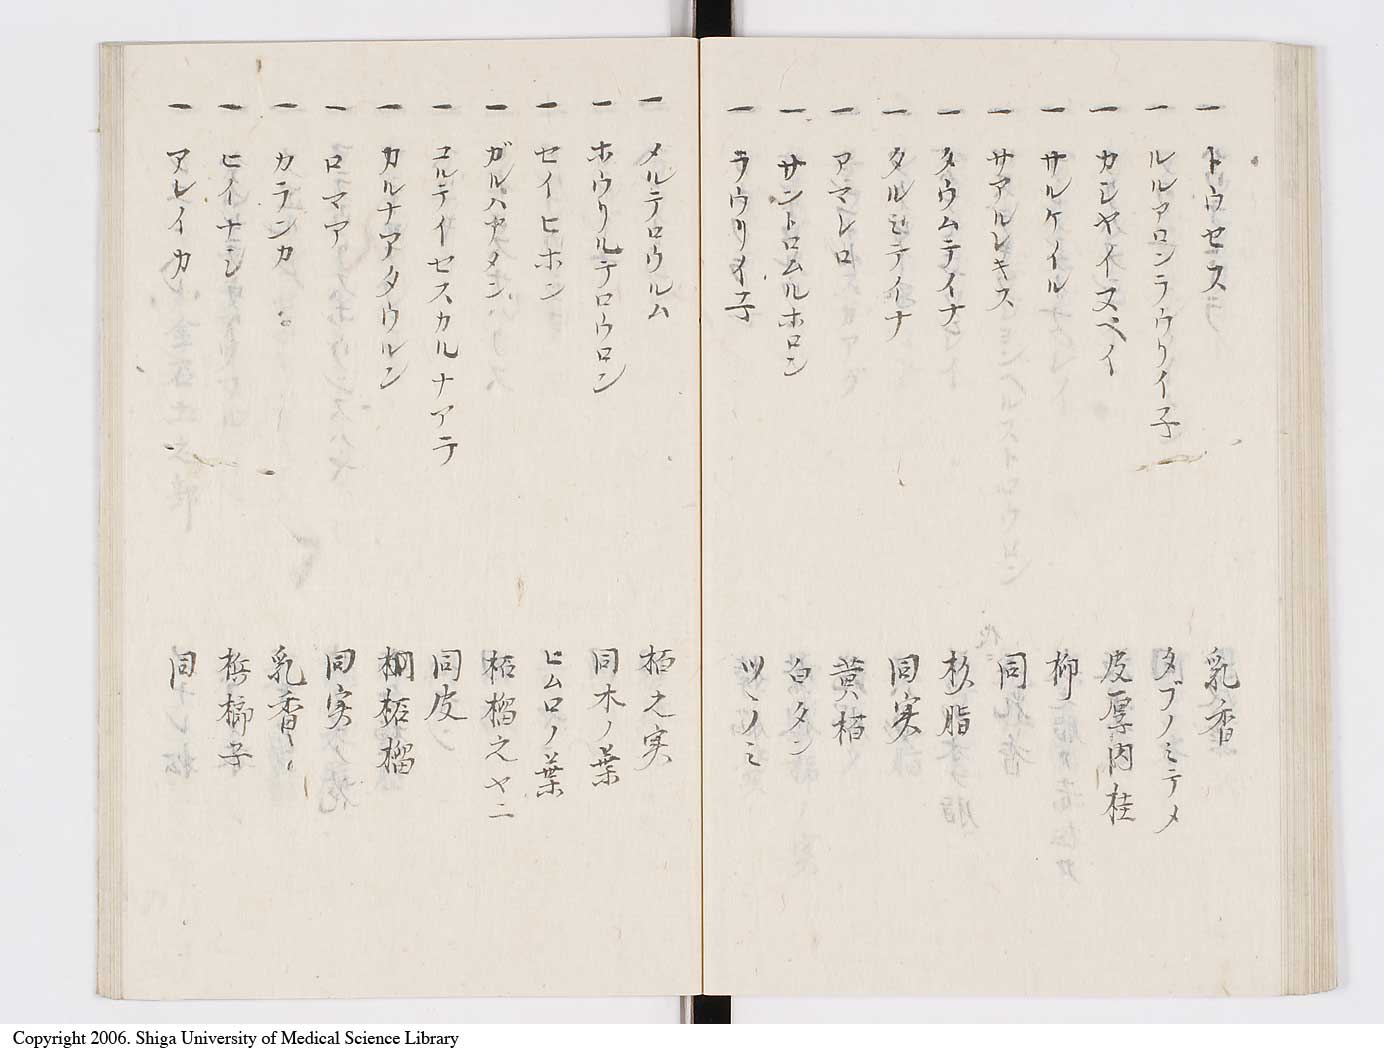 一 トウセス 乳香
一 ルルアロンラウリイ子 タブノミテメ
一 カシヤイヌペイ 皮厚肉桂
一 サルケイル 柳
一 サアルレキス 同
一 タウムテイナ 杉脂
一 タルヒテイナ 同実
一 アマレロ 黄栢
一 サントロムルホロン 白タン
一 ラウリイ子 ツヽノミ
一 メルテロウルム 栢之実
一 ホウリルテロウロン 同木ノ葉
一 セイヒホン ヒムロノ葉
一 ガルハヤメン 柘榴之ヤニ
一 コルテイセスカルナアテ 同皮
一 カルナアタウルン 柘榴
一 ロマア 同実
一 カランカ 乳香
一 ヒイナシ 檳榔子
一 アレイカ 同
Copyright 2006. Shiga University of Medical Science Library